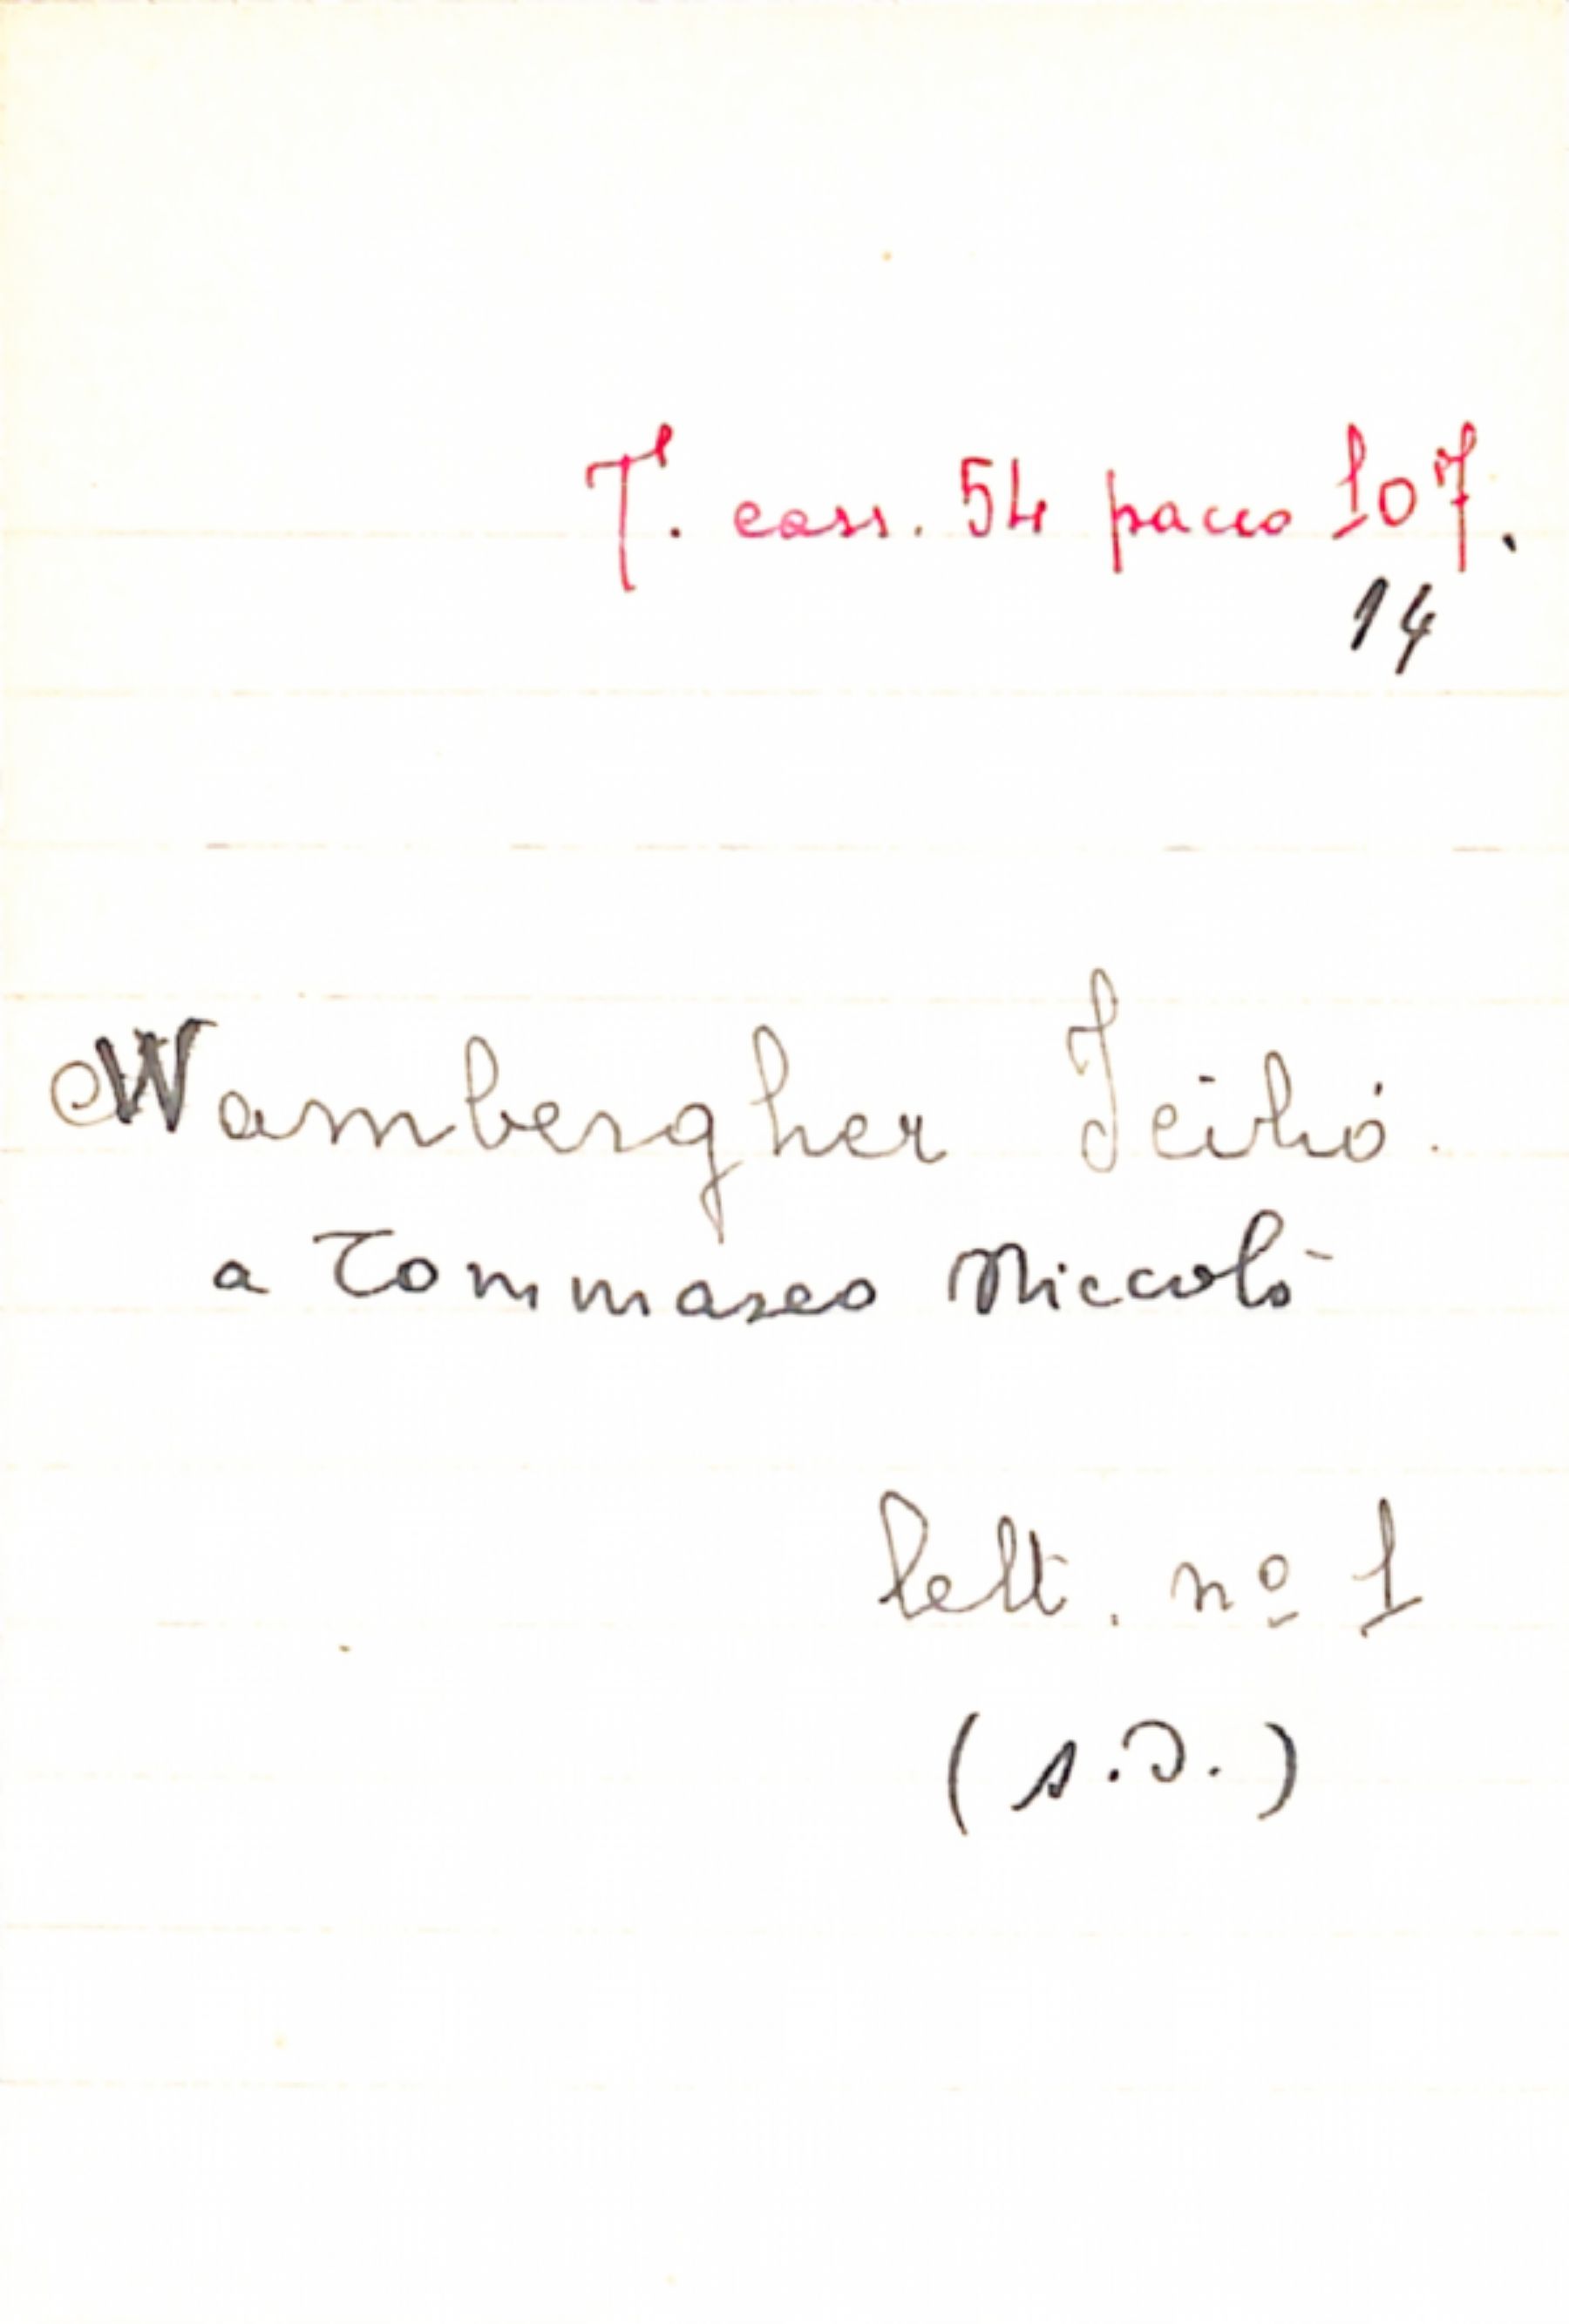 T. cass. 54 pacco 107.
14
Wambergher
a Tommaseo Niccolò
lett. nº 1
(s.d.)